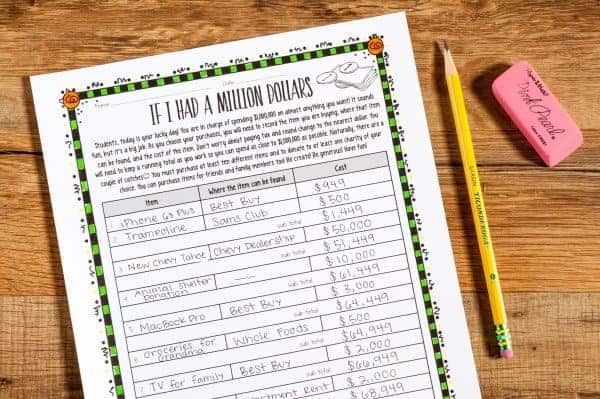 Name Date
IF I HAD A MILLION DOLLARS
Students, today is your lucky day! You are in charge of spending $1,000,000 on almost anything you want! It sounds
fun, but it's a big job. As you choose your purchases, you will need to record the item you are buying, where that item
can be found, and the cost of the item. Don't worry about paying tax and round change to the nearest dollar. You
will need to keep a running total as you work so you can spend as close to $1,000,000 as possible. Naturally, there are a
couple of catches You must purchase at least ten different items and to donate to at least one charity of your
choice. You can purchase items for friends and family members too! Be creative! Be generous! Have fun!
Item Where the item can be found Cost
1. iPhone 6s Plus Best Buy $949
2. Trampoline Sams Club $500
sub total $1,449
3. New Chevy Tahoe Chevy Dealership $50,000
sub total $51,449
4. Animal Shelter Donation $10,000
sub total $61,449
5. MacBook Pro Best Buy $3,000
sub total $64,449
6. Groceries for Grandma Whole Foods $500
sub total $64,949
7. TV for Family Best Buy $2,000
sub total $66,949
Apartment Rent $2,000
$68,949
TICONDEROGA
Pink Pearl